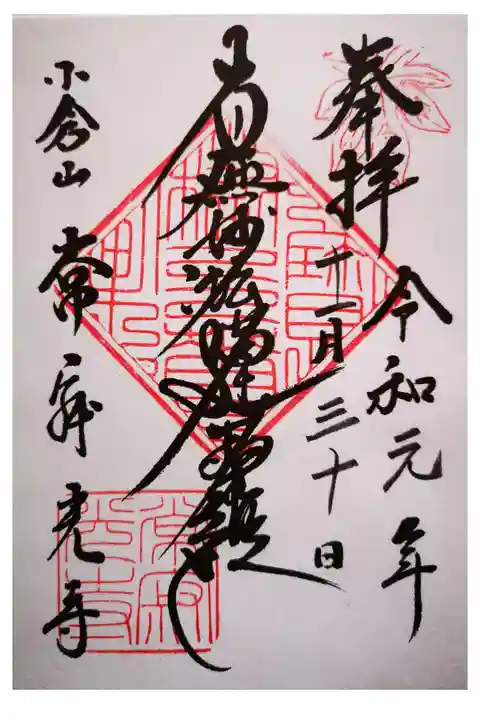 奉拝
令和元年
十一月三十日
南無妙法蓮華経
小倉山 常寂光寺